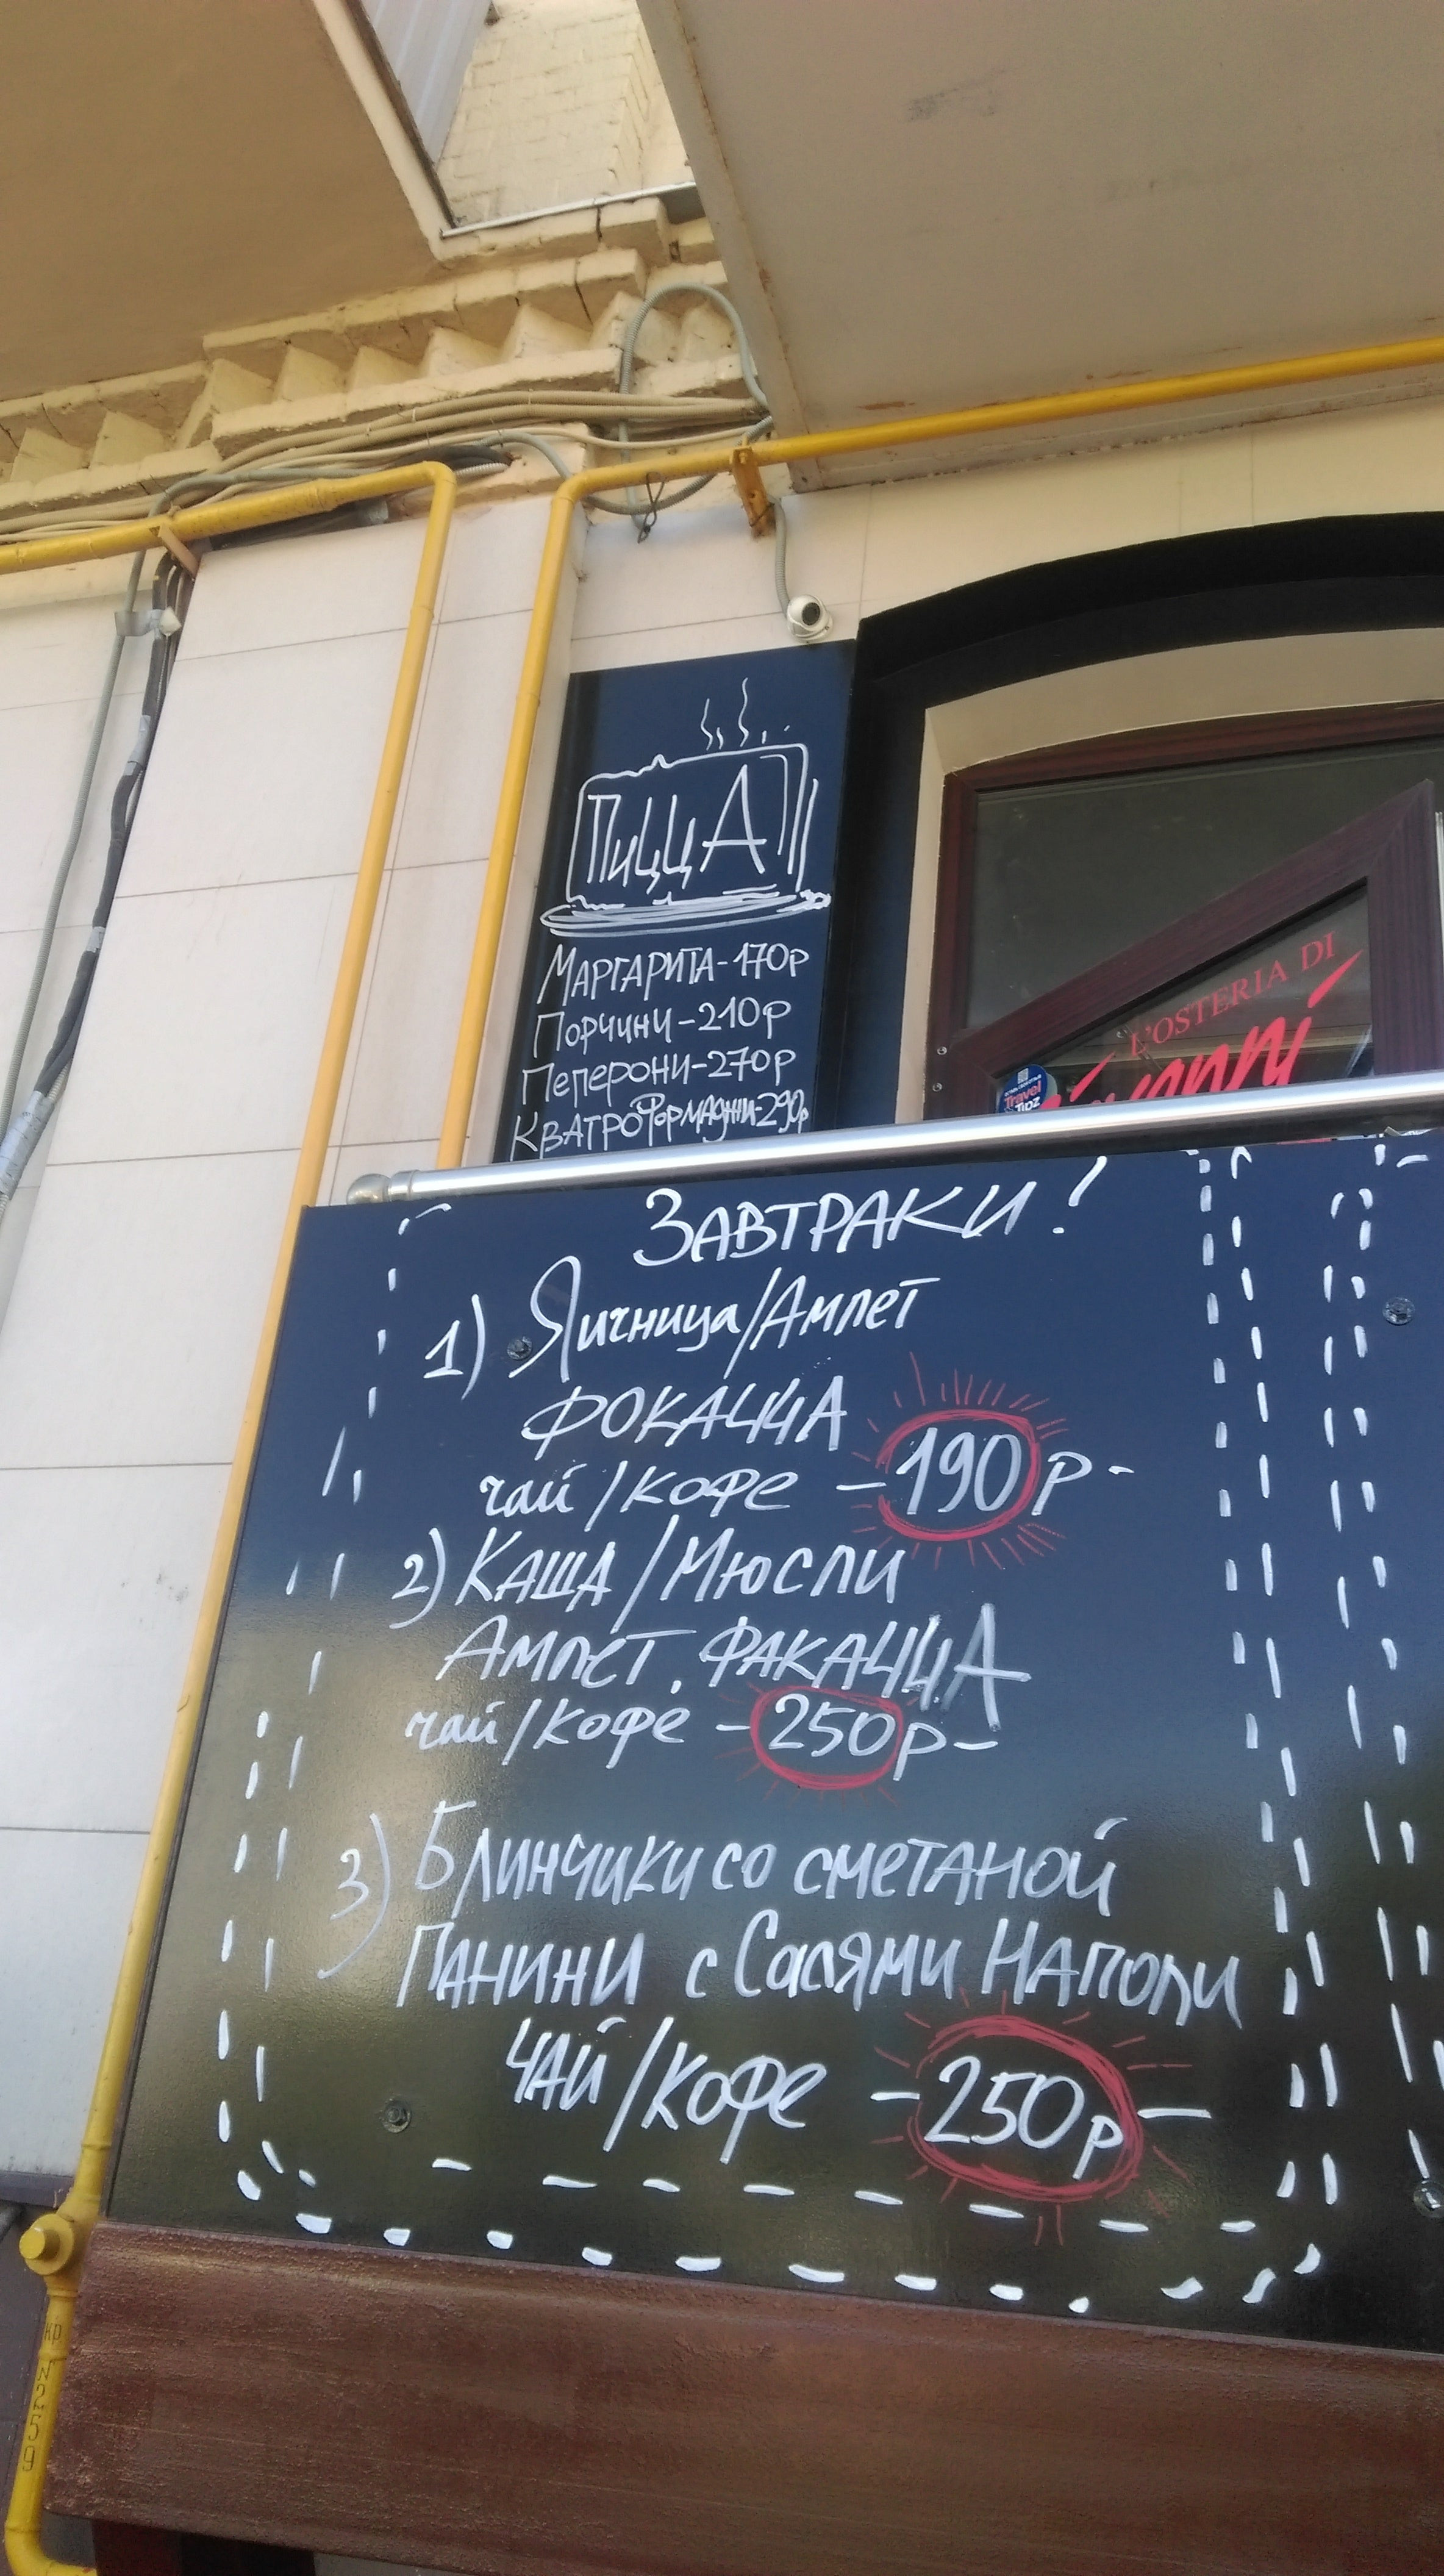 ПИЦЦА
МАРГАРИТА-170р
ПОРЧИНИ-210р
ПЕПЕРОНИ-270р
КВАТРО ФОРМАДЖИ-290р
L'OSTERIA DI
Travel
Tipz
ЗАВТРАКИ!
1) Яичница/Амлет
ФОКАЧЧА
чай/кофе - 190р-
2) КАША/Мюсли
Амлет. ФАКАЧЧА
чай/кофе - 250р-
3) Блинчики со сметаной
Панини с Салями Наполи
ЧАЙ/Кофе - 250р -